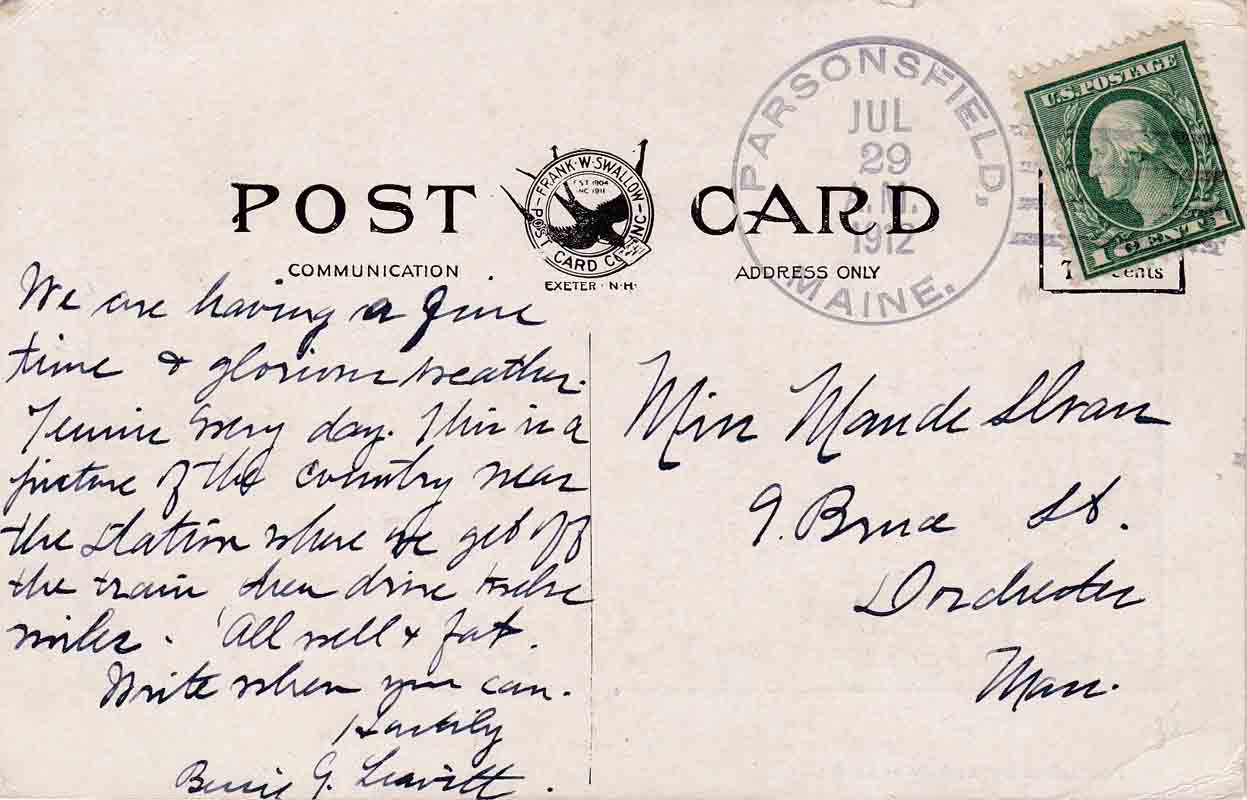 PARSONSFIELD,
JUL
29
A.M.
1912
MAINE.
U.S. POSTAGE
1 CENT 1
POST CARD
FRANK·W·SWALLOW
POST CARD CO. INC
EST 1904
INC 1911
EXETER·N·H·
COMMUNICATION
ADDRESS ONLY
cents
We are having a fine
time & glorious weather.
Tennis every day. This is a
picture of the country near
the station where we get off
the train then drive twelve
miles. All well & fat.
Write when you can.
Hastily
Bessie G. Leavitt.
Miss Maude Sloan
9. Bruce St.
Dorchester
Mass.